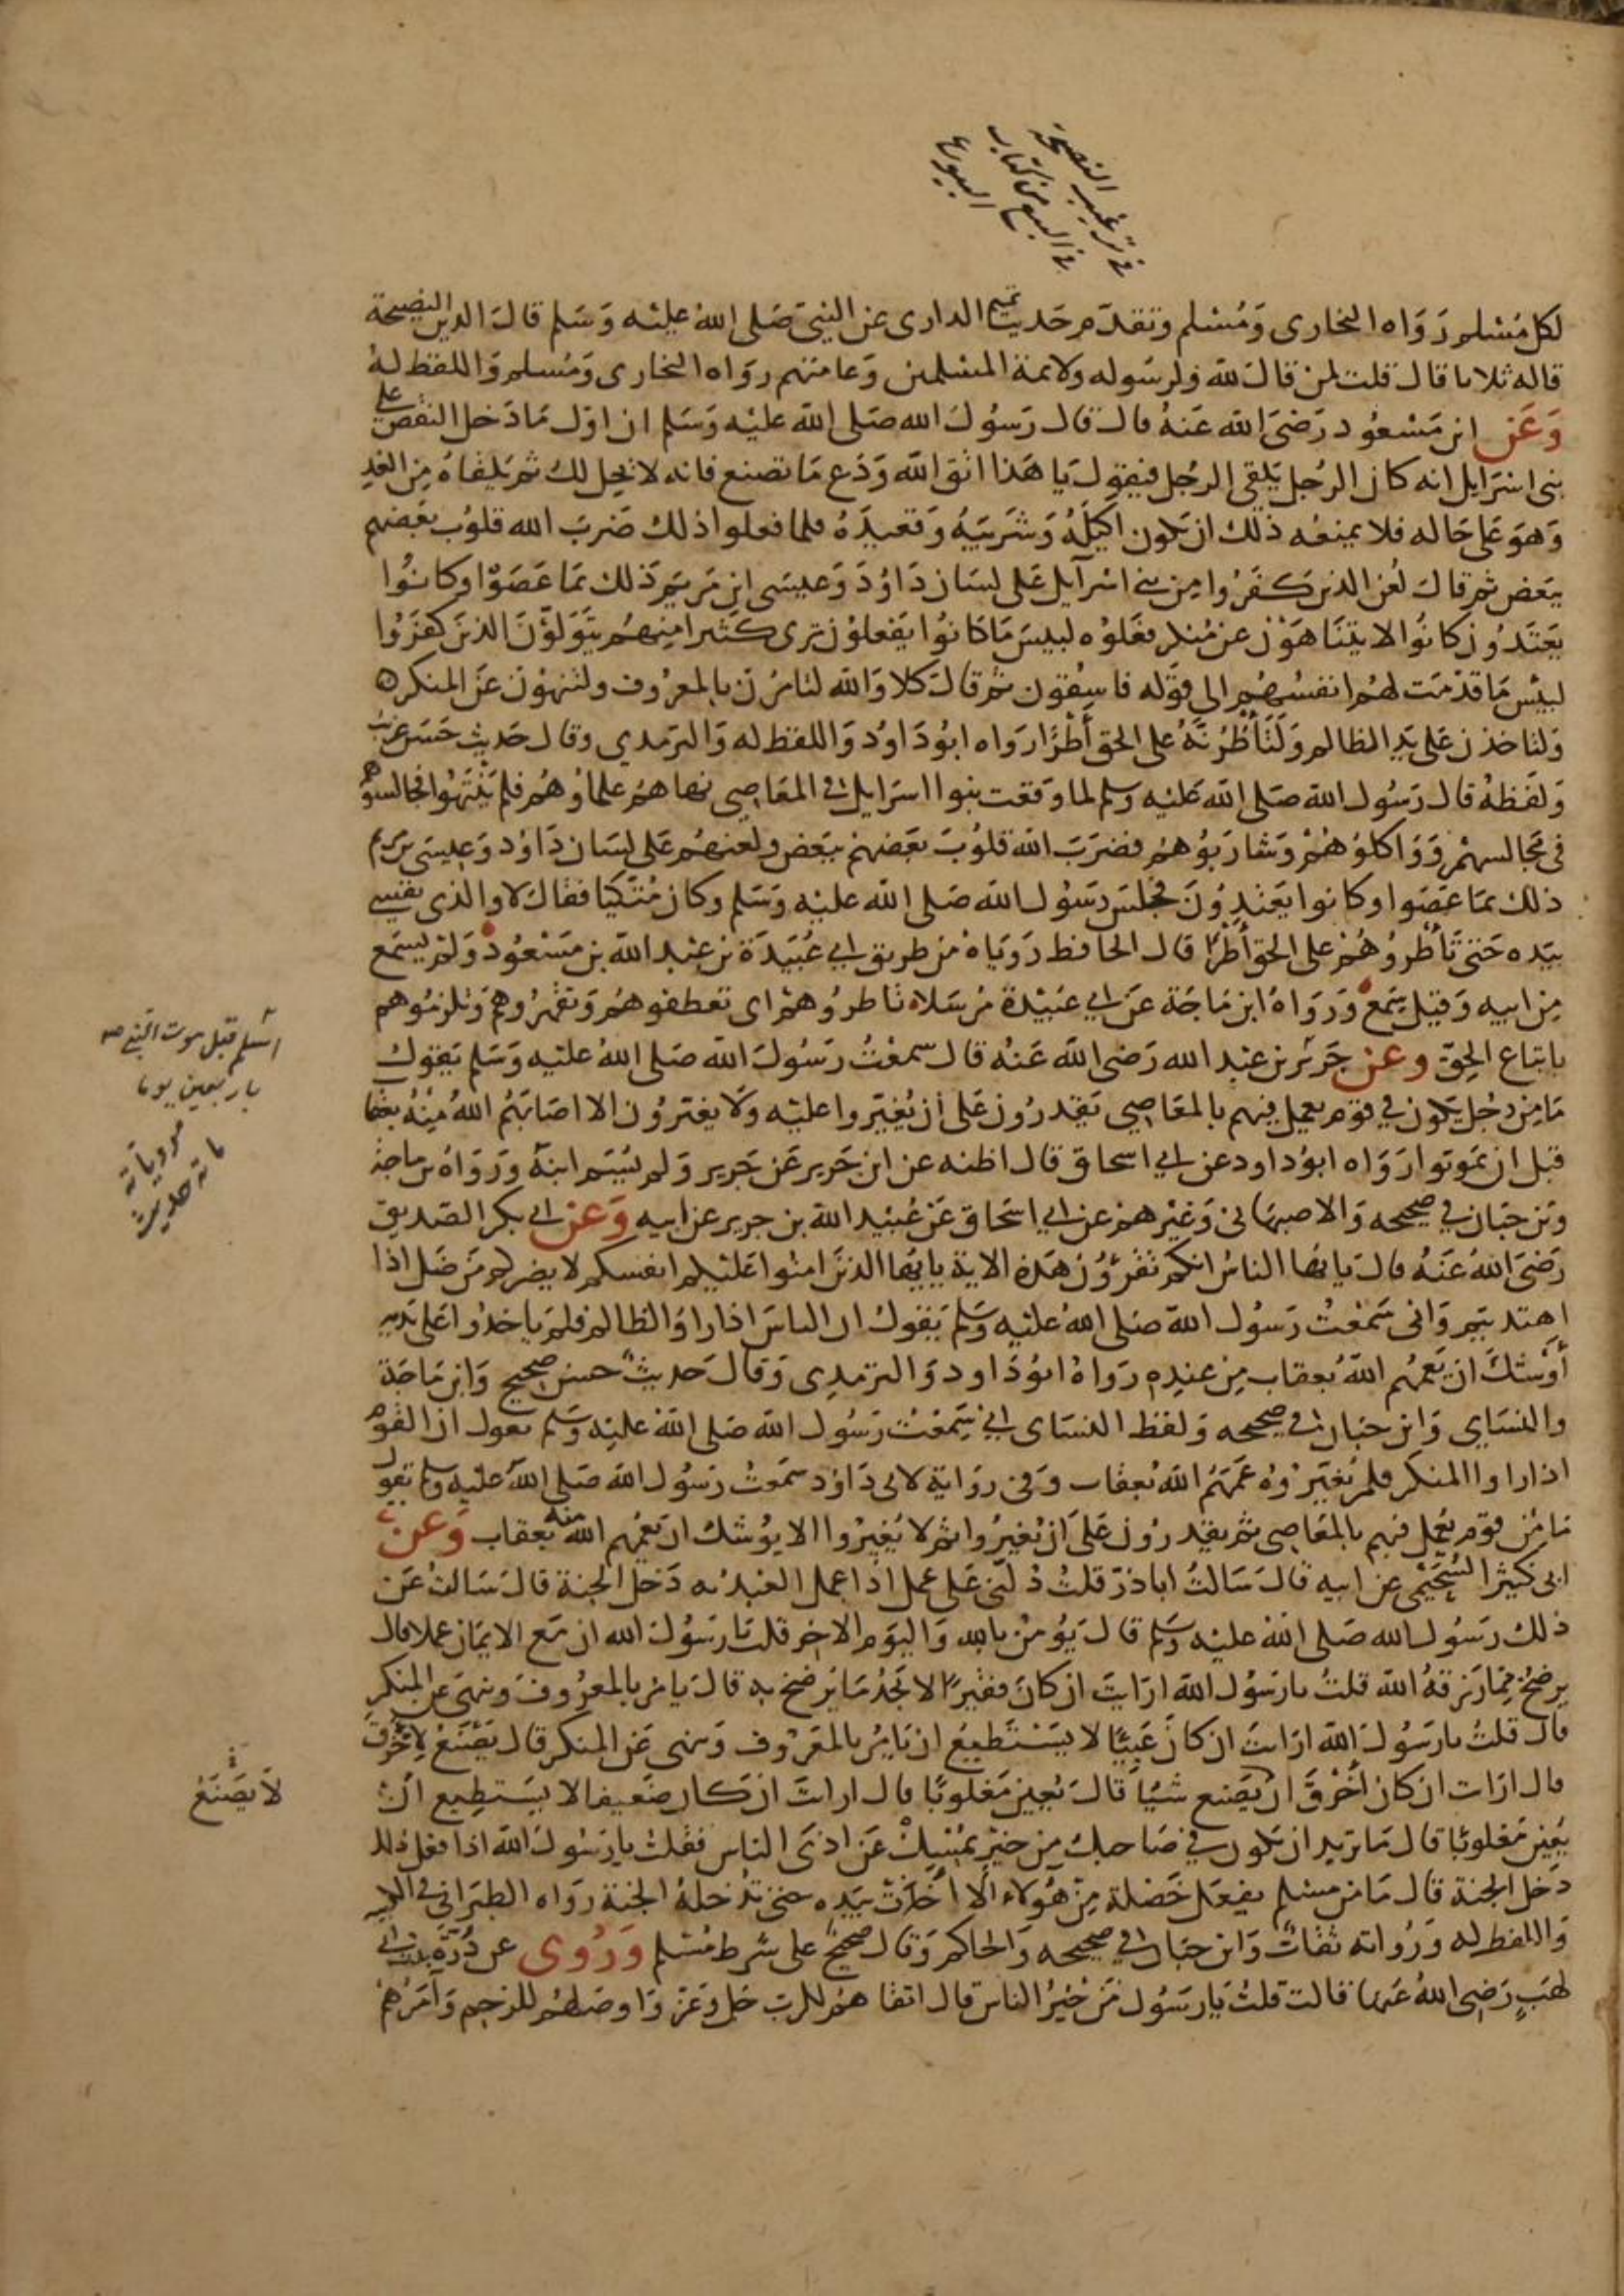 في ترغيب النصيحة
في البيع من كتاب
البيوع
لكل مسلم رواه البخارى ومسلم وتقدم حديث تميم الدارى عن النبي صلى الله عليه وسلم قال الدين النصيحة
قاله ثلاثا قال قلت لمن قال لله ولرسوله ولايمة المسلمين وعامتهم رواه البخارى ومسلم واللفظ له
وعن ابن مسعود رضى الله عنه قال قال رسول الله صلى الله عليه وسلم ان اول ما دخل النقص على
بنى اسرايل انه كان الرجل يلقى الرجل فيقول يا هذا اتق الله ودع ما تصنع فانه لا يحل لك ثم يلقاه من الغد
وهو على حاله فلا يمنعه ذلك ان يكون اكيله وشريبه وقعيده فلما فعلوا ذلك ضرب الله قلوب بعضهم
ببعض ثم قال لعن الذين كفروا من بنى اسرآيل على لسان داؤد وعيسى ابن مريم ذلك بما عصوا وكانوا
يعتدون كانوا لا يتناهون عن منكر فعلوه لبيس ما كانوا يفعلون ترى كثيرا منهم يتولون الذين كفروا
لبيس ما قدمت لهم انفسهم الى قوله فاسقون ثم قال كلا والله لتامرن بالمعروف ولتنهون عن المنكر ه
ولتاخذن على يد الظالم ولتأطرنه على الحق أطرا رواه ابو داود واللفظ له والترمدي وقال حديث حسن غريب
ولفظه قال رسول الله صلى الله عليه وسلم لما وقعت بنوا اسرايل فى المعاصى نهاهم علماؤهم فلم ينتهوا فجالسوهم
فى مجالسهم وواكلوهم وشاربوهم فضرب الله قلوب بعضهم ببعض ولعنهم على لسان داود وعيسى بن مريم
ذلك بما عصوا وكانوا يعتدون فجلس رسول الله صلى الله عليه وسلم وكان متكيا فقال لا والذى نفسى
بيده حتى تأطروهم على الحق أطرا قال الحافظ روياه من طريق ابي عبيدة بن عبد الله بن مسعود ولم يسمع
من ابيه وقيل سمع ورواه ابن ماجة عن ابي عبيدة مرسلا ه تاطروهم اى تعطفوهم وتقهروهم وتلزموهم
باتباع الحق وعن جرير بن عبد الله رضى الله عنه قال سمعت رسول الله صلى الله عليه وسلم يقول
ما من رجل يكون في قوم يعمل فيهم بالمعاصى يقدرون على أن يغيروا عليه ولا يغيرون الا اصابهم الله منه بعقاب
قبل ان يموتوا رواه ابو داود عن ابي اسحاق قال اظنه عن ابن جرير عن جرير ولم يسم ابنه ورواه بن ماجة
وبن حبان في صحيحه والاصبهانى وغيرهم عن ابي اسحاق عن عبيد الله بن جرير عن ابيه وعن ابى بكر الصديق
رضى الله عنه قال يا ايها الناس انكم تقرؤن هذه الاية يا ايها الذين امنوا عليكم انفسكم لا يضركم من ضل اذا
اهتديتم وانى سمعت رسول الله صلى الله عليه وسلم يقول ان الناس اذا راوا الظالم فلم ياخذوا على يديه
أوشك ان يعمهم الله بعقاب من عنده رواه ابو داود والترمدى وقال حديث حسن صحيح وابن ماجة
والنساي وابن حبان فى صحيحه ولفظ النساى انى سمعت رسول الله صلى الله عليه وسلم يقول ان القوم
اذا راوا المنكر فلم يغيروه عمهم الله بعقاب وفى رواية لابى داود سمعت رسول الله صلى الله عليه وسلم يقول
ما من قوم يعمل فيهم بالمعاصى ثم يقدرون على ان يغيروا ثم لا يغيروا الا يوشك ان يعمهم الله منه بعقاب وعن
ابى كثير السحيمى عن ابيه قال سالت ابا ذر قلت دلنى على عمل اذا عمل العبد به دخل الجنة قال سالت عن
ذلك رسول الله صلى الله عليه وسلم قال يؤمن بالله واليوم الاخر قلت يا رسول الله ان مع الايمان عملا قال
يرضخ مما رزقه الله قلت يا رسول الله ارايت ان كان فقيرا لا يجد ما يرضخ به قال يامر بالمعروف وينهى عن المنكر
قال قلت يا رسول الله ارايت ان كان عييا لا يستطيع ان يامر بالمعروف وينهى عن المنكر قال يصنع لاخرق
قال ارات ان كان أخرق ان يصنع شيا قال يعين مغلوبا قال ارات ان كان ضعيفا لا يستطيع ان
يعين مغلوبا قال ما تريد ان يكون في صاحبك من خير يمسك عن اذى الناس فقلت يا رسول الله اذا فعل ذلك
دخل الجنة قال ما من مسلم يفعل خصلة من هؤلاء الا أخذت بيده حتى تدخله الجنة رواه الطبرانى فى الكبير
واللفظ له ورواته ثقات وابن حبان فى صحيحه والحاكم وقال صحيح على شرط مسلم وروى عن درة بنت ابى
لهب رضى الله عنها قالت قلت يا رسول من خير الناس قال اتقاهم للرب جل وعز واوصلهم للرحم وآمرهم
اسلم قبل موت النبي صه
باربعين يوما
مروياته
ماته حديث
لا يصنع